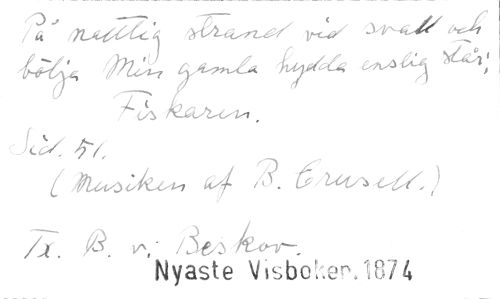 På nattlig strand vid svall och
bölja Min gamla hydda enslig står;
Fiskaren.
Sid. 51.
(Musiken af B. Crusell.)
Tx. B. v. Beskov.
Nyaste Visboken. 1874